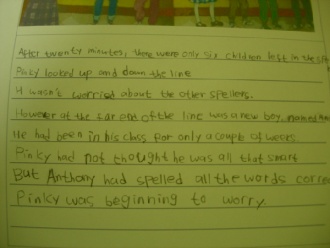 After twenty minutes, there were only six children left in the
Pinky looked up and down the line
H wasn't worried about the other spellers.
However at the far end of the line was a new boy, named
He had been in his class for only a couple of weeks.
Pinky had not thought he was all that smart
But Anthony had spelled all the words corre
Pinky was beginning to worry.